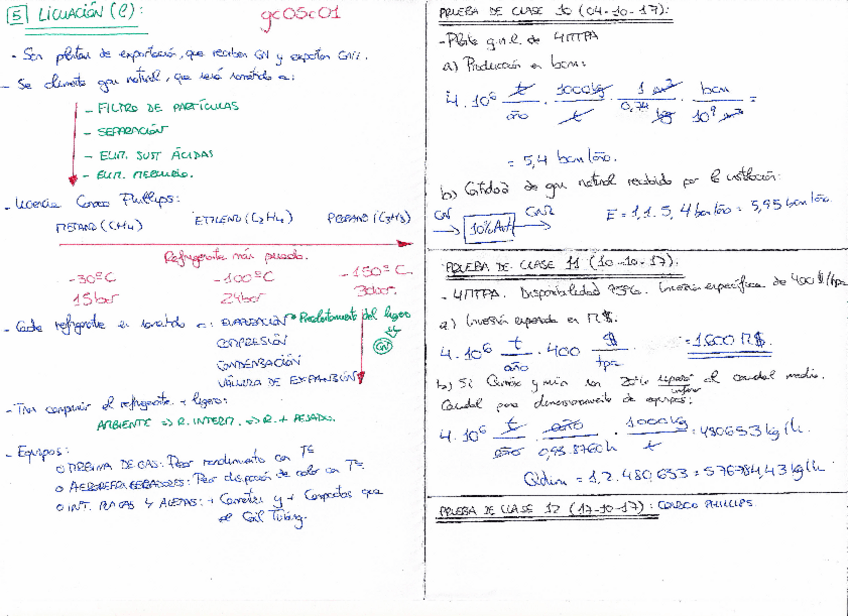 5 LICUACIÓN (P):
gc05c01
- Son plantas de exportación, que reciben GN y exportan GNL.
- Se alimenta gas natural, que será sometido a:
- FILTRO DE PARTÍCULAS
- SEPARACIÓN
- ELIM. SUST ÁCIDAS
- ELIM. MERCURIO.
- Licencia Conoco Phillips:
METANO (CH4) ETILENO (C2H4) PROPANO (C3H8)
Refrigerante más pesado.
-30ºC -100ºC -150ºC
15bar 24bar 30bar.
- Cada refrigerante es sometido a: EVAPORACIÓN → Preenfriamiento del ligero
COMPRESIÓN
GN
CONDENSACIÓN
VÁLVULA DE EXPANSIÓN
- Tras comprimir el refrigerante + ligero:
AMBIENTE => R. INTERM. => R. + PESADO.
- Equipos:
o TURBINA DE GAS: Peor rendimiento con Tª
o AEROREFRIGERADORES: Peor disipación de calor con Tª.
o INT. PLACAS Y ALETAS: + Corrientes y + Compactos que
el Coil Tubing.
PRUEBA DE CLASE 10 (04-10-17):
- Planta g.n.l. de 4MTPA
a) Producción en bcm:
4.10⁶ t/año . 1000kg/t . 1 m³/0,74 kg . bcm/10⁹ m³ =
= 5,4 bcm/año.
b) Cantidad de gas natural recibido por la instalación:
GN → 10% Aut → GNL E = 1,1. 5,4 bcm/año = 5,95 bcm/año
PRUEBA DE CLASE 11 (10-10-17):
- 4MTPA. Disponibilidad 95%. Inversión específica de 400 $/tpa
a) Inversión esperada en M$.
4.10⁶ t/año . 400 $/tpa = 1.600 M$.
b) Si Qmáx y mín un 20% superior/inferior al caudal medio.
Caudal para dimensionamiento de equipos:
4.10⁶ t/año . año/0,95.8760h . 1000kg/t = 480653 kg/h.
Qdim = 1,2. 480.653 = 576784,43 kg/h
PRUEBA DE CLASE 12 (17-10-17): CONOCO PHILLIPS